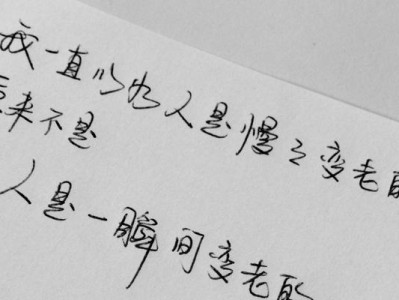 我一直以为人是慢々变老的
后来不是
人是一瞬间变老的